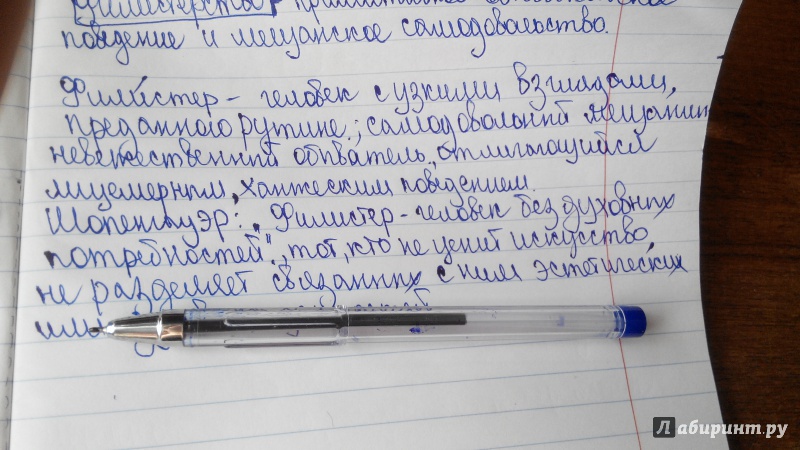 Филистерство
поведение и мещанское самодовольство.
Филистер – человек с узкими взглядами,
преданного рутине.; самодовольный мещанин,
невежественный обыватель, отличающийся
лицемерным, ханжеским поведением.
Шопенгауэр: „Филистер – человек без духовных
потребностей", тот, кто не ценит искусство,
не разделяет связанных с ним эстетических
или
Лабиринт.ру